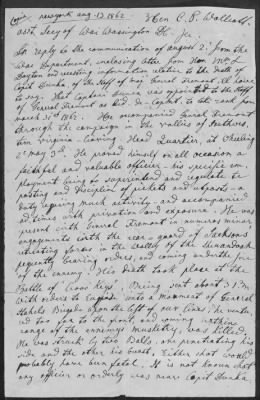 Copy New york aug. 13 1862 Hon C. P. Wolcott
asst Secy of War Washington Ct. Sir:
In reply to the communication of august 2d from the
War Department, enclosing letter from Hon
requesting information relative to the death of
Capt of the staff of Maj General Fremont, I'll have
to say, that Captain was appointed to the staff
of General Fremont as aid-de-Camp, to take rank from
march 31st 1862. He accompanied General Fremont
through the campaign in the valleys of Western
Virginia, leaving Head Quarters, at Wheeling
May 3d. He proved himself on all occasion a
faithful and valuable officer - his specific em-
ployment being to superintend and regulate the
posting and discipline of pickets and outposts - a
duty requiring much activity - and accompanied
at times with privation and exposure. He was
present with General Fremont in numerous minor
engagements with the rear-guard of Jacksons
retreating forces in the valley of the Shenandoah
frequently bearing orders, and coming under the fire
of the enemy. His death took place at the
Battle of Cross Keys, Being sent about 3 P.M.
With orders to a movement of General
Stahels Brigade upon the left of our lines, he ventur-
ed too far to the front, and coming within
range of the enemys musketry, was killed.
He was struck by two Balls, one penetrating his
side and the other his breast, Either shot would
probably have been fatal, It is not known that
any officer or orderly was near Capt